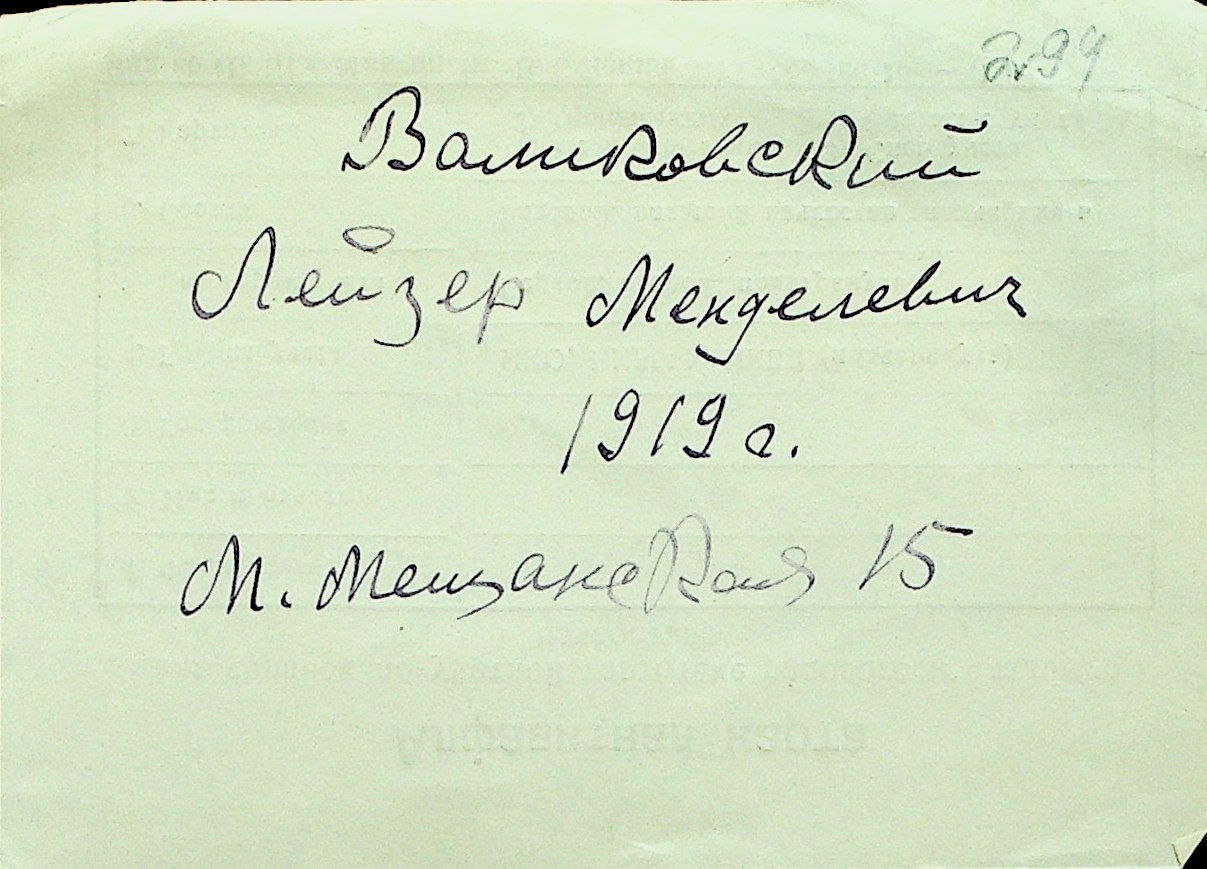 Валиковский
Лейзер Менделевич
1919 г.
М. Мещанская 15